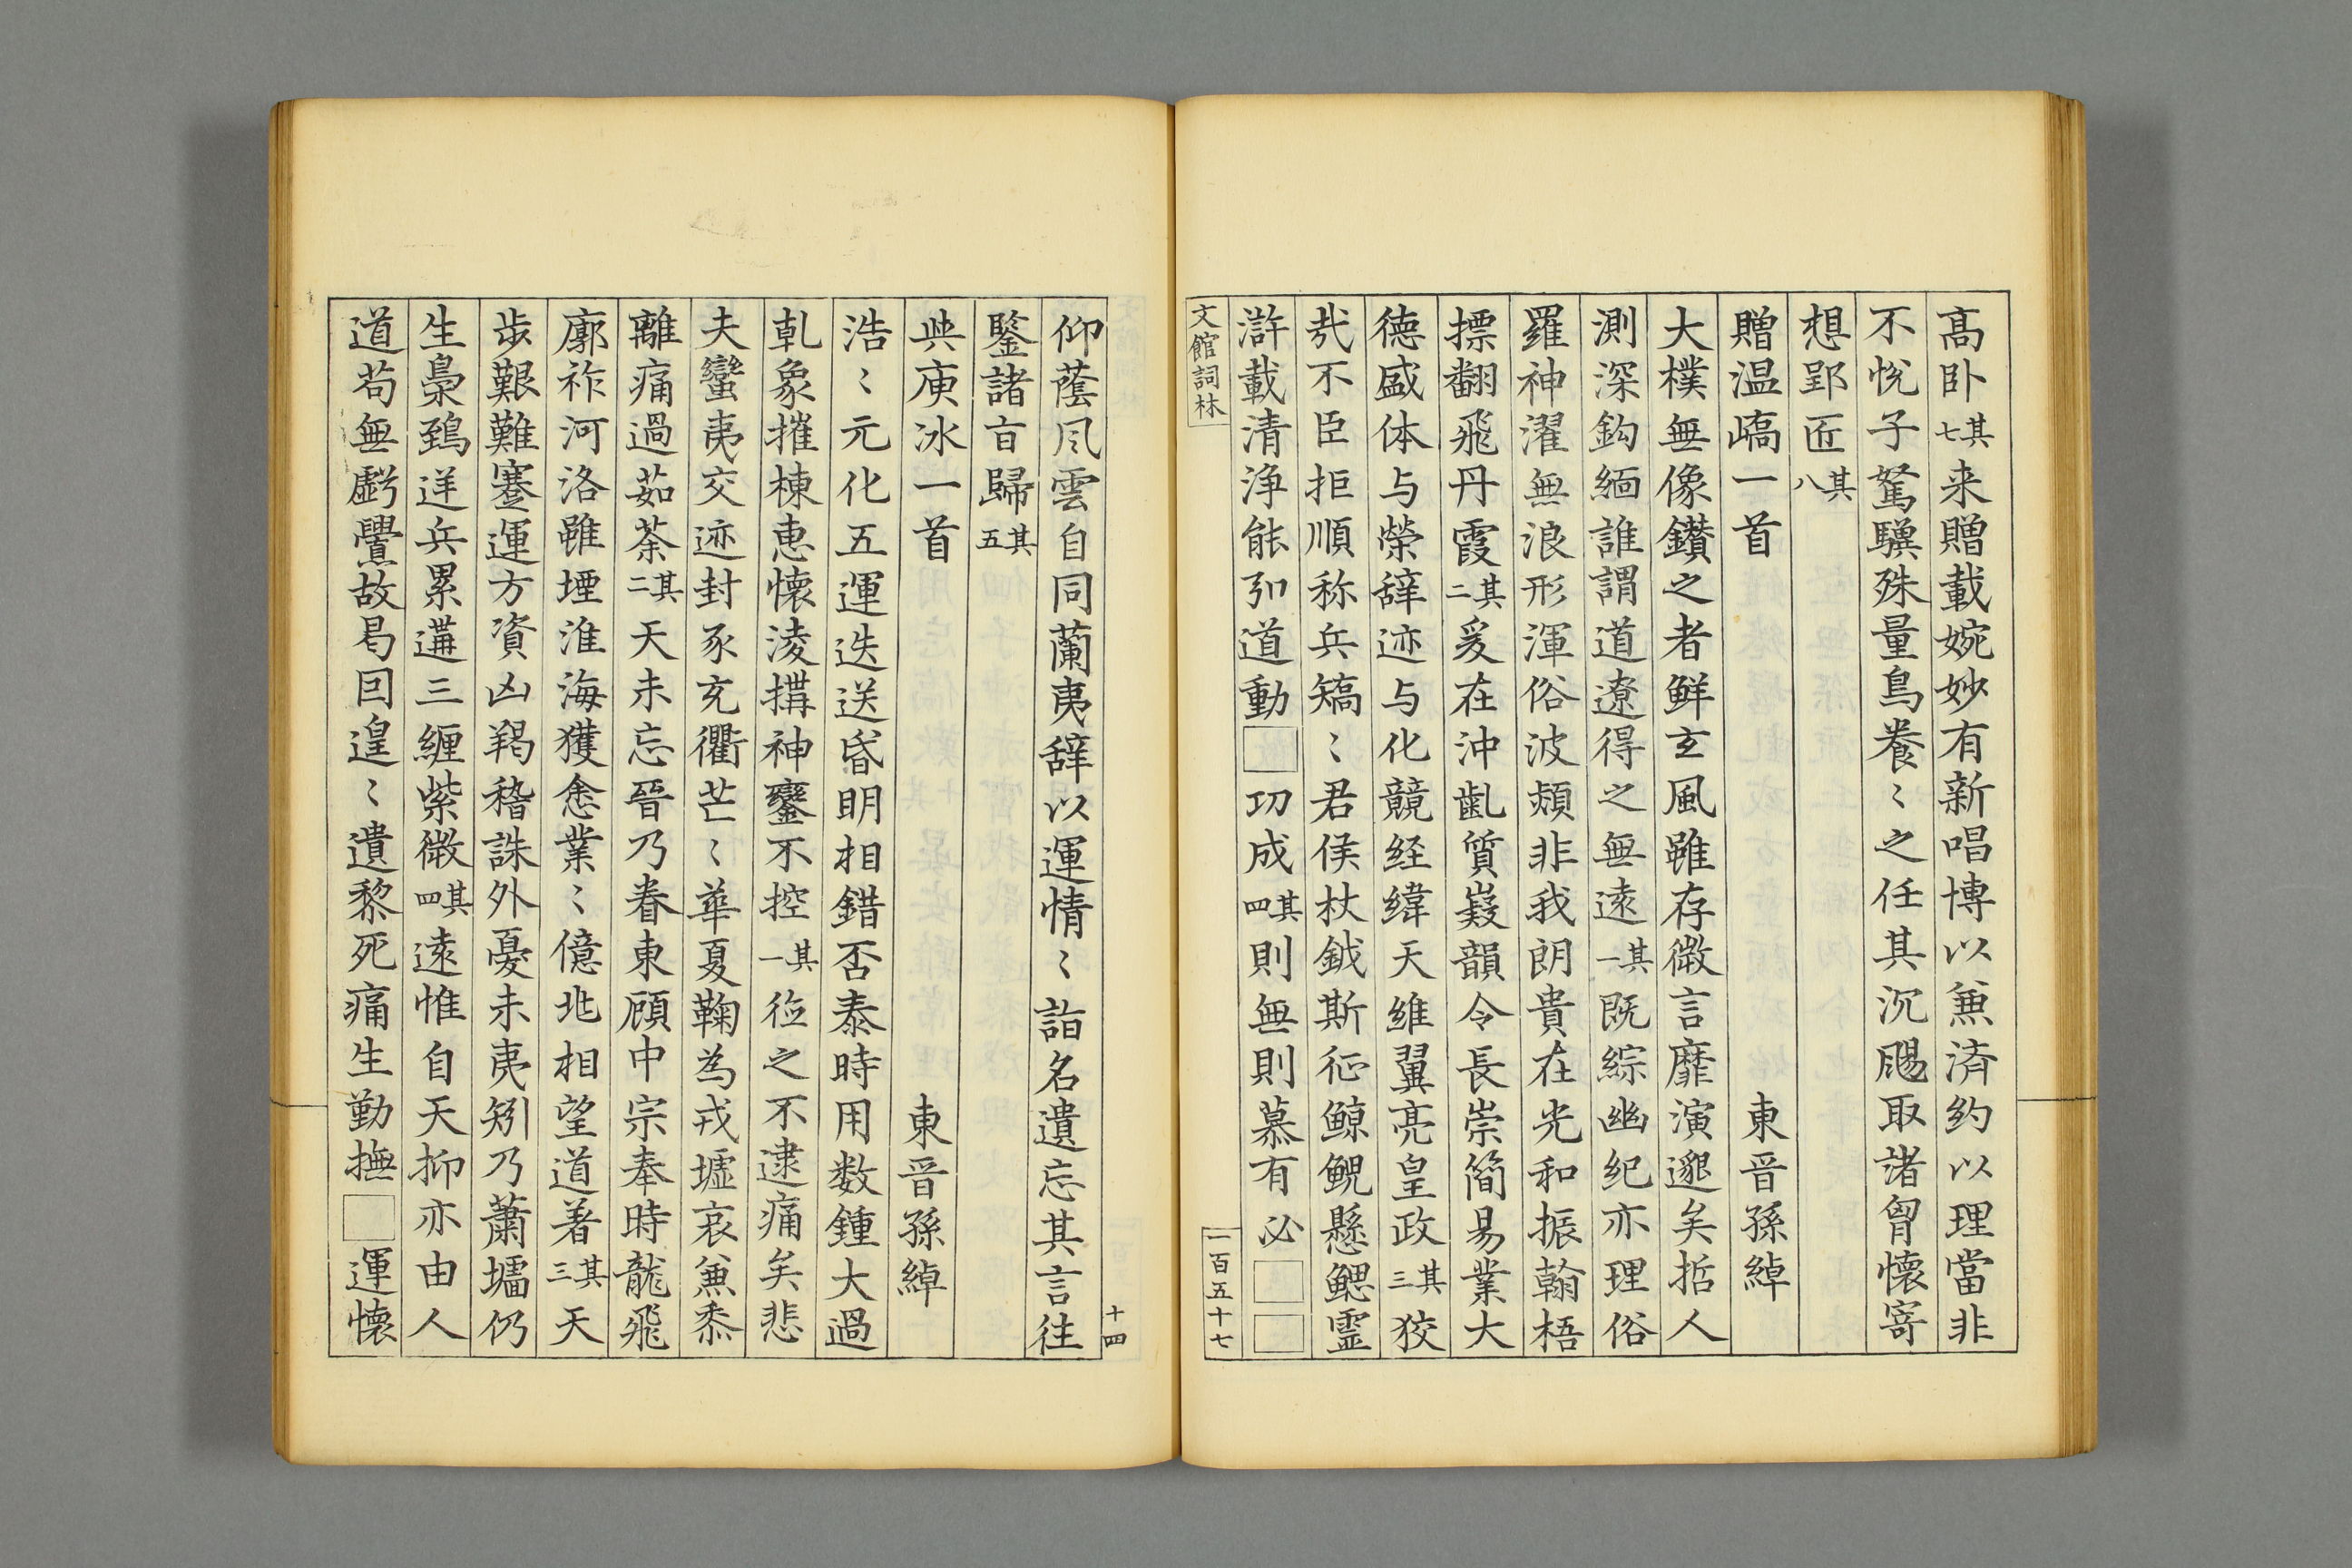 高卧其七来贈載婉妙有新唱博以兼済約以理當非
不悅子駑驥殊量鳥養〻之任其沉飏取諸胷懷寄
想郢匠其八
贈温嶠一首 東晋孫綽
大樸無像鑚之者鮮玄風雖存微言靡演邈矣哲人
測深鈎緬誰謂道遼得之無遠其一既綜幽紀亦理俗
羅神濯無浪形渾俗波頮非我朗貴在光和振翰梧
摽翻飛丹霞其二爰在沖齓質嶷韻令長崇簡易業大
德盛体与榮辞迹与化競経緯天維翼亮皇政其三狡
㢤不臣拒順称兵矯〻君侯杖鉞斯征鯨鯢懸鰓霊
滸載清浄能弘道動□功成其四則無則慕有必□□
文館詞林
一百五十七
十四
仰蔭風雲自同蘭夷辞以運情〻詣名遺忘其言往
鑒諸㫖歸其五
與庾冰一首 東晋孫綽
浩〻元化五運迭送昏明相錯否泰時用数鍾大過
乹象摧棟惠懷淩構神鑾不控其一徳之不逮痛矣悲
夫蠻夷交迹封豕充衢芒〻華夏鞠為戎墟哀兼黍
離痛過茹荼其二天未忘晉乃眷東顧中宗奉時龍飛
廓祚河洛雖堙淮海獲悆業〻億兆相望道著其三天
步艱難蹇運方資凶羯稽誅外憂未夷矧乃蕭墻仍
生梟鵄逆兵累遘三纏紫微其四遠惟自天抑亦由人
道苟無虧舋故曷囙遑〻遺黎死痛生勤撫□運懷